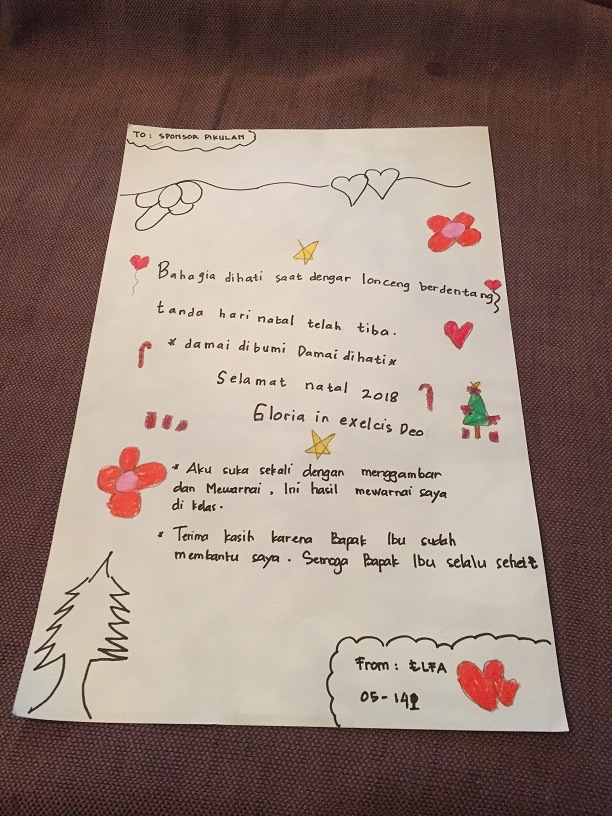 TO: SPONSOR PIKULAN
Bahagia dihati saat dengar lonceng berdentang
tanda hari natal telah tiba.
* damai dibumi Damai dihati *
Selamat natal 2018
Gloria in exelcis Deo
* Aku suka sekali dengan menggambar
dan Mewarnai. Ini hasil mewarnai saya
di kelas.
* Terima kasih karena Bapak Ibu sudah
membantu saya. Semoga Bapak Ibu selalu sehat
From: ELFA
05-142